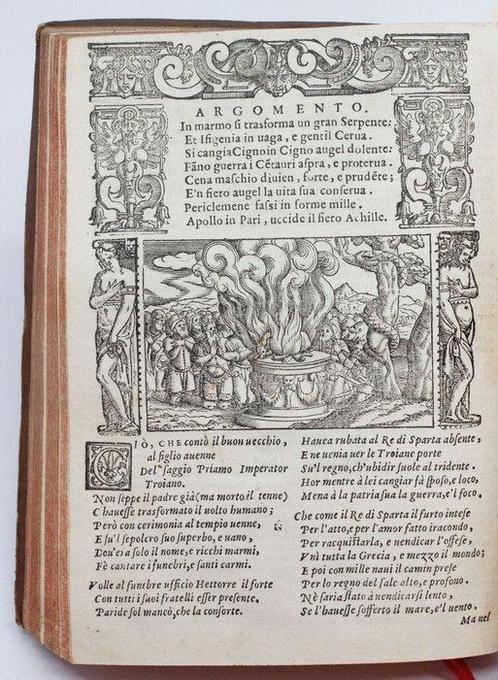 ARGOMENTO.
In marmo si trasforma un gran Serpente:
Et Ifigenia in uaga, e gentil Cerua.
Si cangia Cigno in Cigno augel dolente:
Fãno guerra i Cẽtauri aspra, e proterua.
Cena maschio diuien, forte, e prudẽte;
E'n fiero augel la uita sua conserua.
Periclemene fassi in forme mille.
Apollo in Pari, uccide il fiero Achille.
CIÒ, CHE contò il buon uecchio,
al figlio auenne
Del saggio Priamo Imperator
Troiano.
Non seppe il padre già (ma morto il tenne)
C'hauesse trasformato il uolto humano;
Però con cerimonia al tempio uenne,
E su'l sepolcro suo superbo, e uano,
Dou'era solo il nome, e ricchi marmi,
Fè cantare i funebri, e santi carmi.
Volle al funebre ufficio Hettorre il forte
Con tutti i suoi fratelli esser presente.
Paride sol mancò, che la consorte.
Hauea rubata al Re di Sparta absente,
E ne uenia uer le Troiane porte
Su'l regno, ch'ubidir suole al tridente.
Hor mentre à lei cangiar fà sposo, e loco,
Mena à la patria sua la guerra, e'l foco.
Che come il Re di Sparta il furto intese
Per l'atto, e per l'amor fatto iracondo,
Per racquistarla, e uendicar l'offese,
Vnì tutta la Grecia, e mezzo il mondo;
E poi con mille naui il camin prese
Per lo regno del sale alto, e profono.
Nè saria stato à uendicarsi lento,
Se l'hauesse sofferto il mare, e'l uento.
Manel